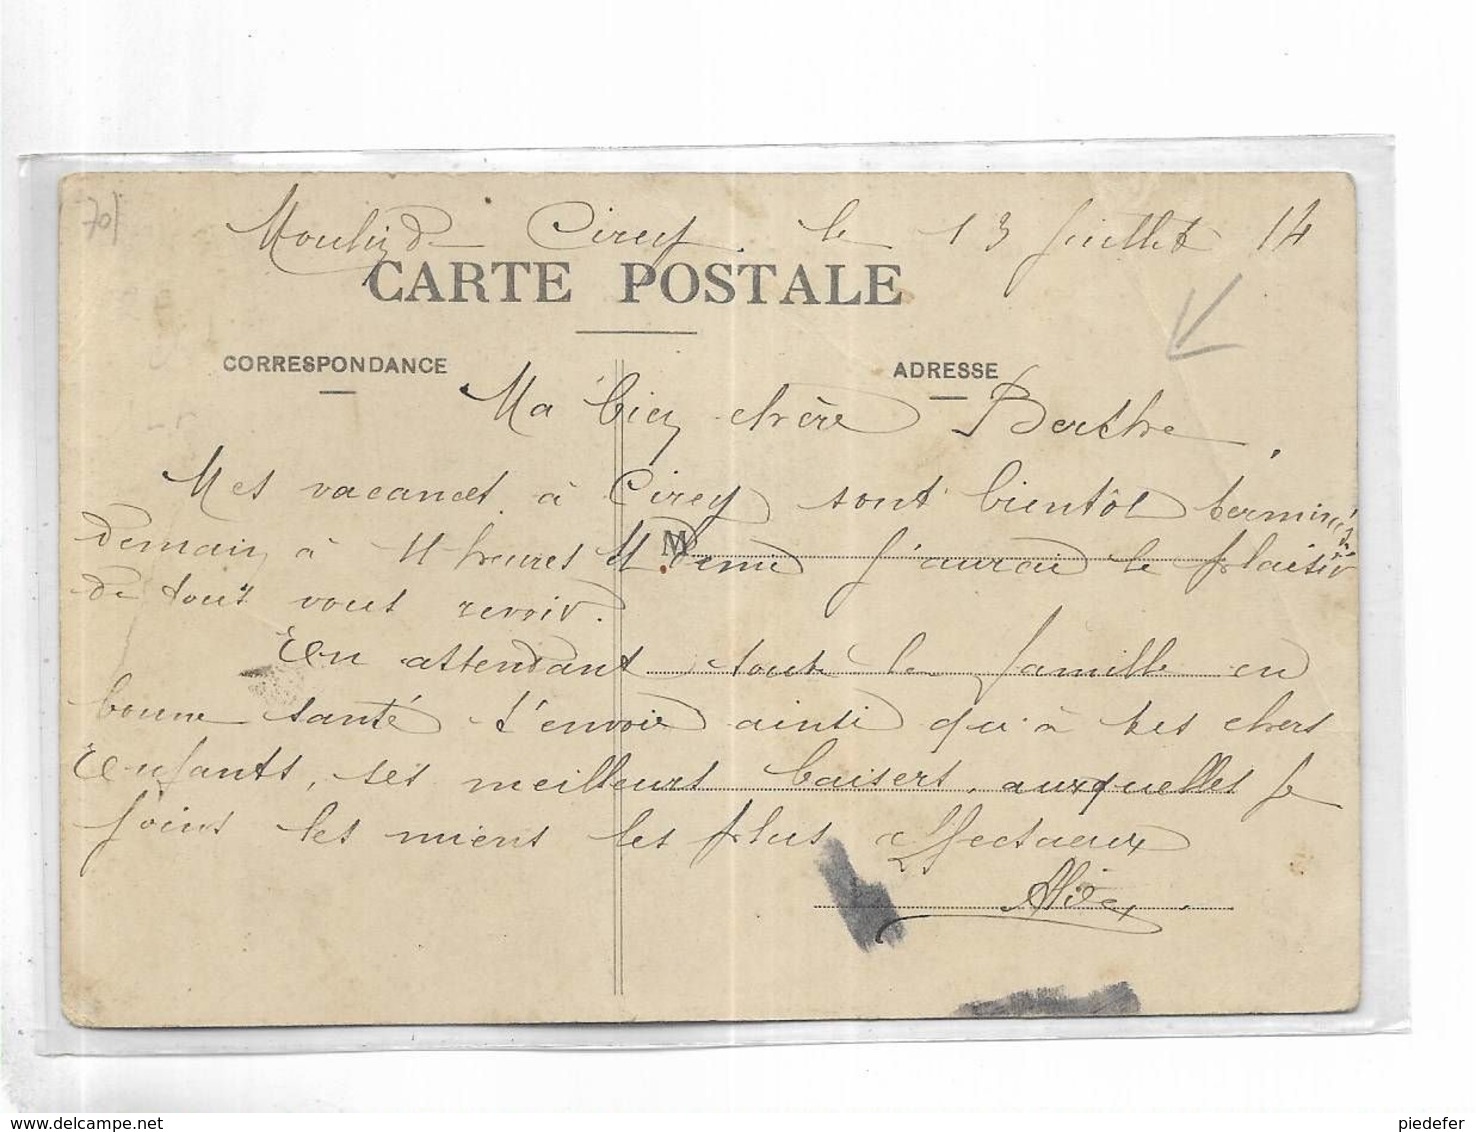 70
Moulin de Cirey. le 13 Juillet 14
CARTE POSTALE
CORRESPONDANCE
ADRESSE
Ma bien chère Berthe,
Mes vacances à Cirey sont bientôt terminées
M
demain à 11 heures demie j'aurai le plaisir
de tous vous revoir.
En attendant toute la famille en
bonne santé t'envoie ainsi qu'à tes chers
Enfants, ses meilleurs baisers, auxquelles je
joins les miens les plus affectueux
piedefer